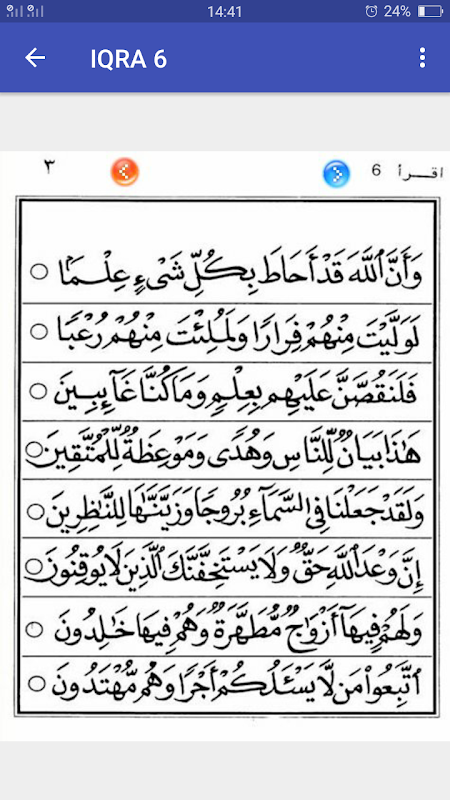 14:41 24%
IQRA 6
اقرأ 6 ٣
وَأَنَّ ٱللَّهَ قَدْ أَحَاطَ بِكُلِّ شَىْءٍ عِلْمًا
لَوَلَّيْتَ مِنْهُمْ فِرَارًا وَلَمُلِئْتَ مِنْهُمْ رُعْبًا
فَلَنَقُصَّنَّ عَلَيْهِم بِعِلْمٍ وَمَا كُنَّا غَآئِبِينَ
هَٰذَا بَيَانٌ لِّلنَّاسِ وَهُدًى وَمَوْعِظَةٌ لِّلْمُتَّقِينَ
وَلَقَدْ جَعَلْنَا فِى السَّمَآءِ بُرُوجًا وَزَيَّنَّٰهَا لِلنَّٰظِرِينَ
إِنَّ وَعْدَ اللَّهِ حَقٌّ وَلَا يَسْتَخِفَّنَّكَ الَّذِينَ لَا يُوقِنُونَ
وَلَهُمْ فِيهَآ أَزْوَٰجٌ مُّطَهَّرَةٌ وَهُمْ فِيهَا خَٰلِدُونَ
ٱتَّبِعُوا۟ مَن لَّا يَسْـَٔلُكُمْ أَجْرًا وَهُم مُّهْتَدُونَ